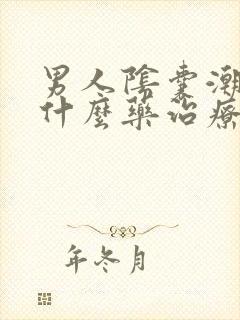 男人陰囊潮
什麼藥治療
年冬月